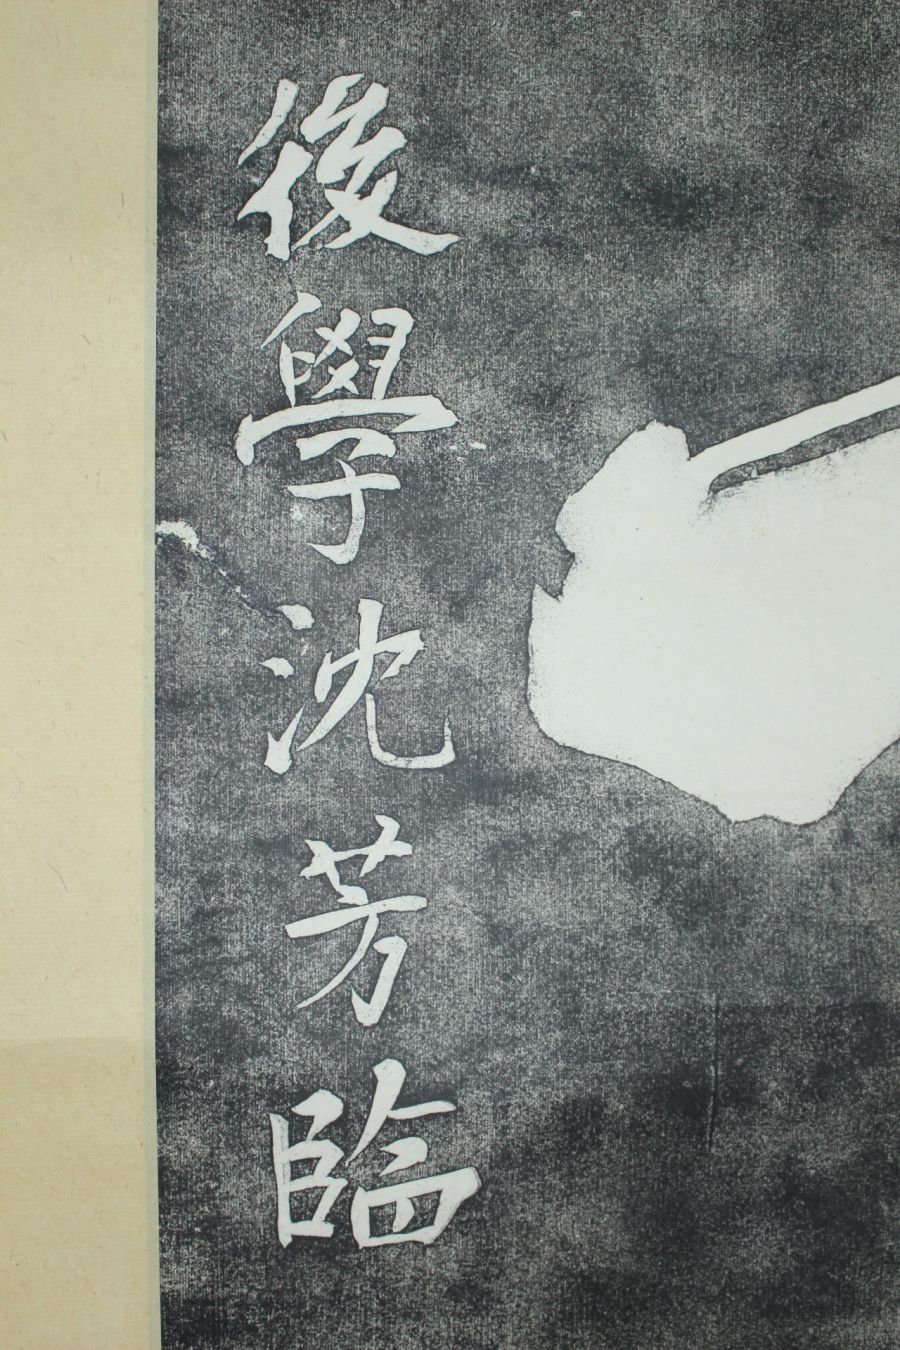 後學沈芳臨